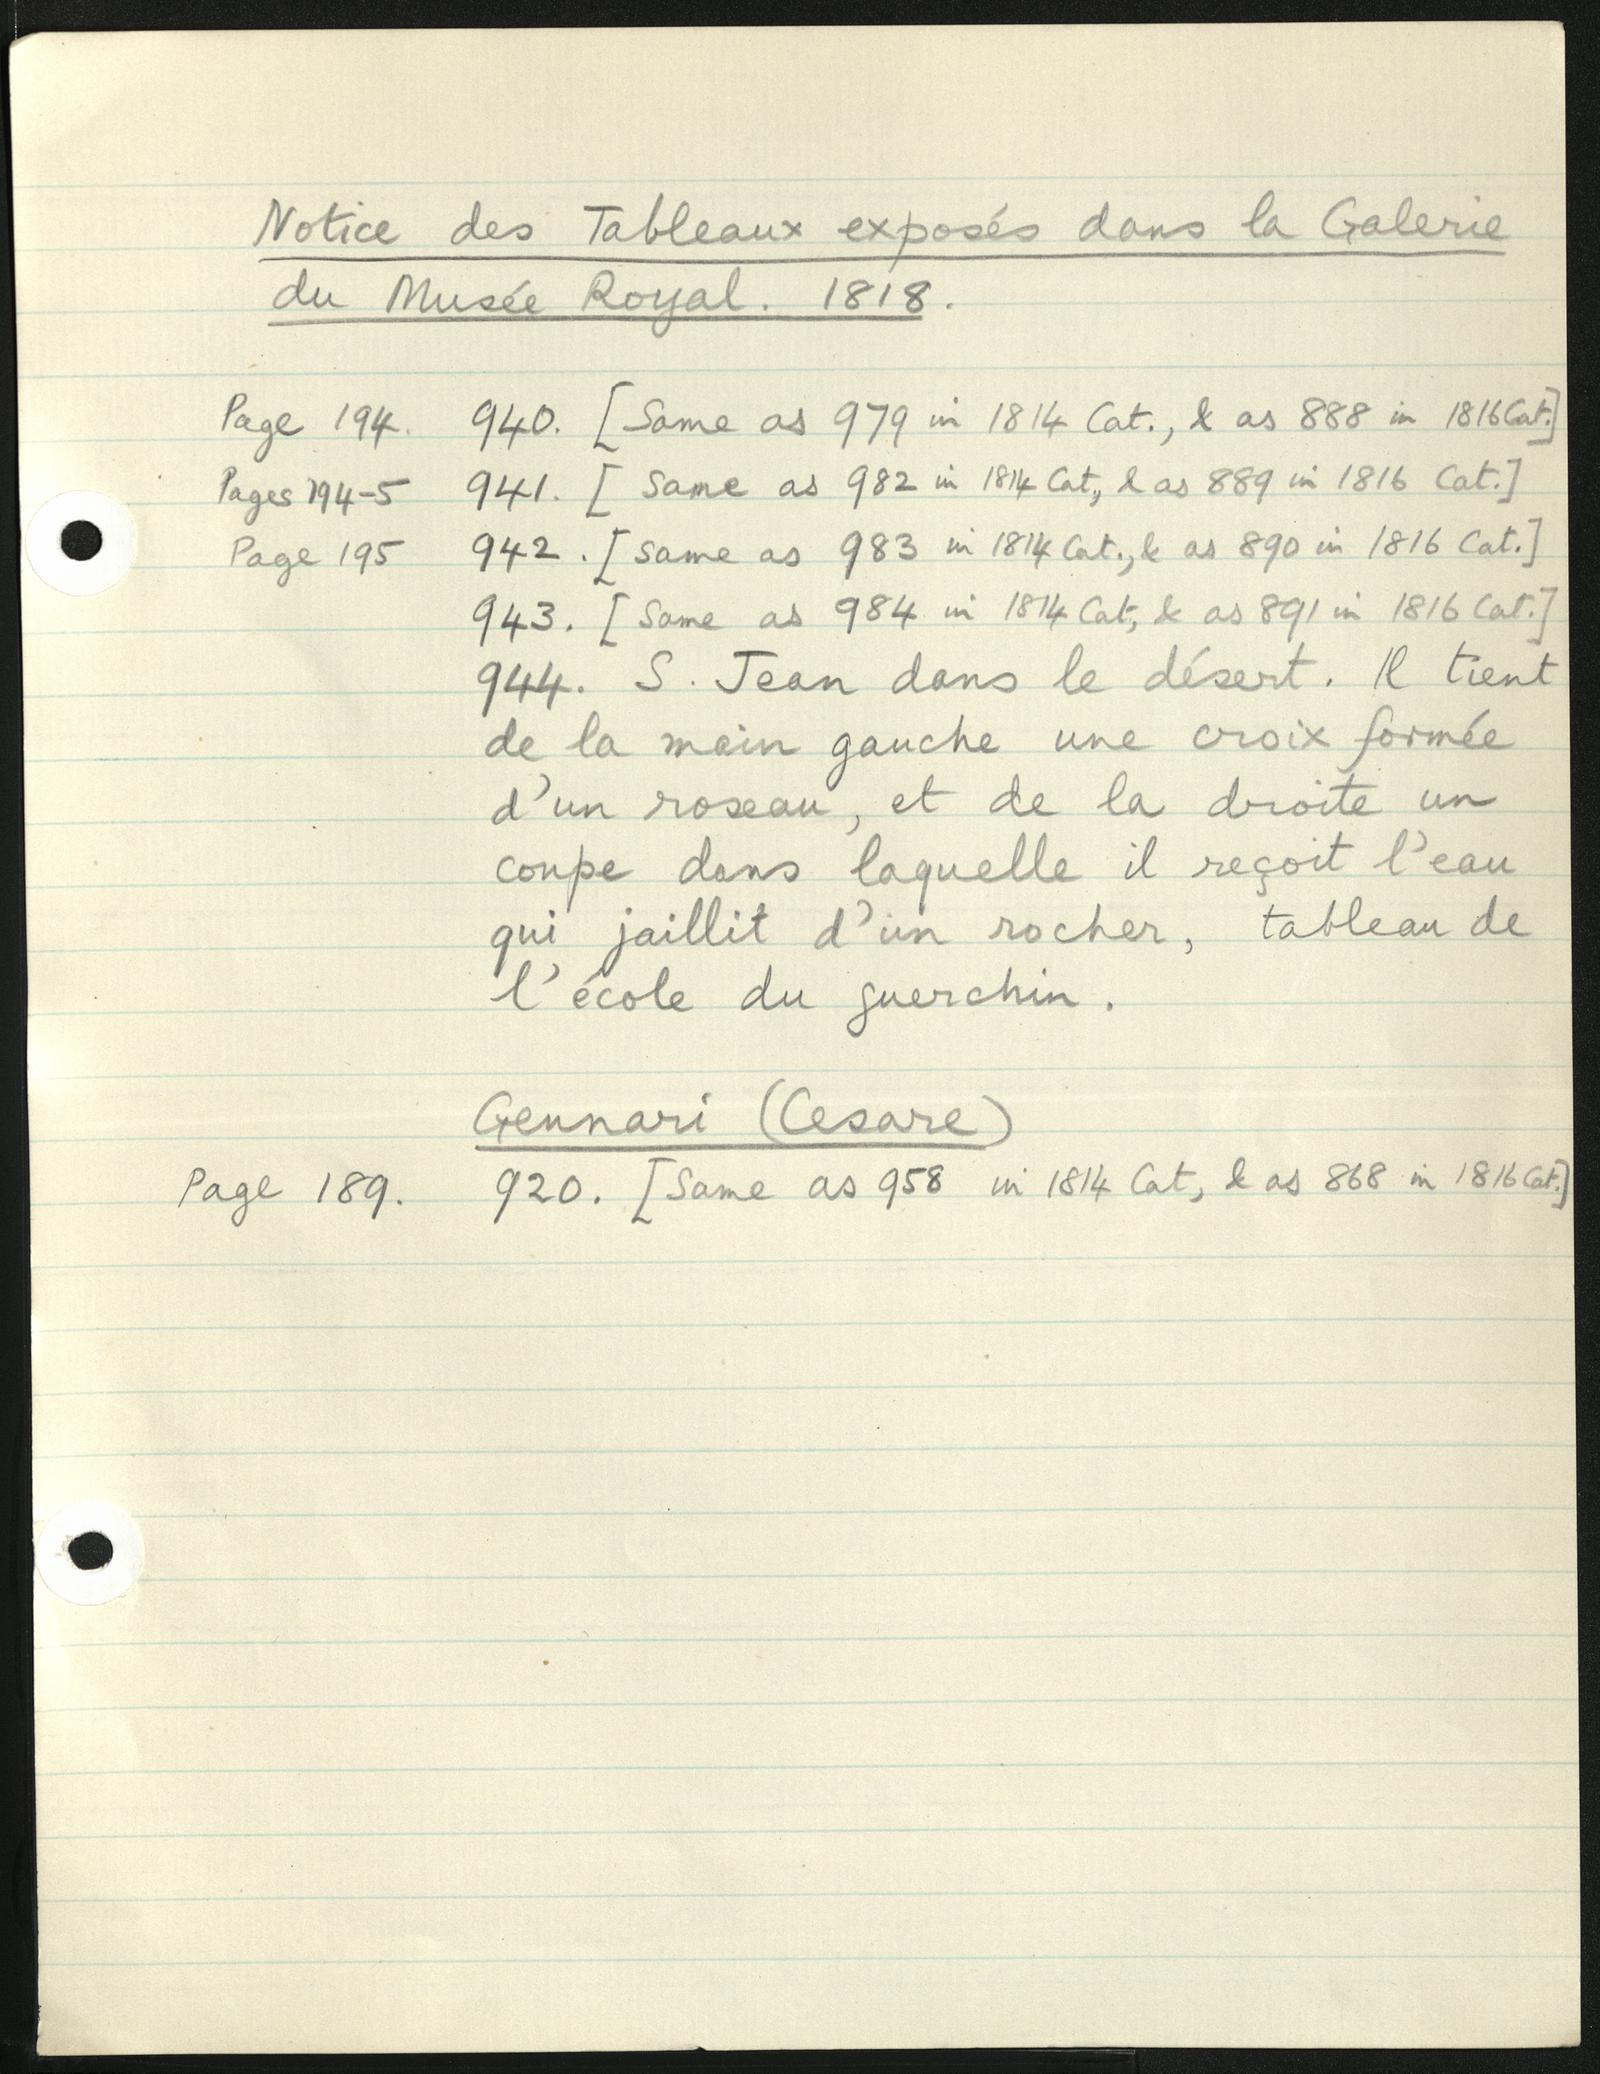 Notice des Tableaux exposés dans la Galerie
du Musée Royal. 1818.
Page 194. 940. [Same as 979 in 1814 Cat., & as 888 in 1816 Cat.]
Pages 194-5 941. [Same as 982 in 1814 Cat., & as 889 in 1816 Cat.]
Page 195 942. [Same as 983 in 1814 Cat., & as 890 in 1816 Cat.]
943. [Same as 984 in 1814 Cat, & as 891 in 1816 Cat.]
944. S. Jean dans le désert. Il tient
de la main gauche une croix formée
d'un roseau, et de la droite un
coupe dans laquelle il reçoit l'eau
qui jaillit d'un rocher, tableau de
l'école du guerchin.
Gennari (Cesare)
Page 189. 920. [Same as 958 in 1814 Cat, & as 868 in 1816 Cat.]